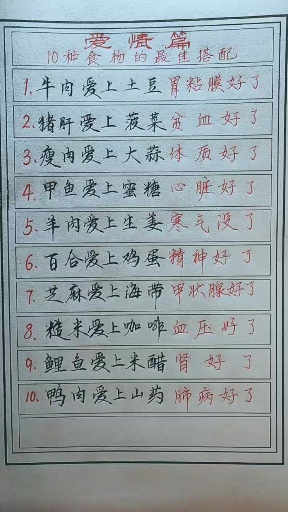 爱情篇
10种食物的最佳搭配
1.牛肉爱上土豆胃粘膜好了
2.猪肝爱上菠菜贫血好了
3.瘦肉爱上大蒜体质好了
4.甲鱼爱上蜜糖心脏好了
5.羊肉爱上生姜寒气没了
6.百合爱上鸡蛋精神好了
7.芝麻爱上海带甲状腺好了
8.糙米爱上咖啡血压好了
9.鲤鱼爱上米醋肾好了
10.鸭肉爱上山药肺病好了